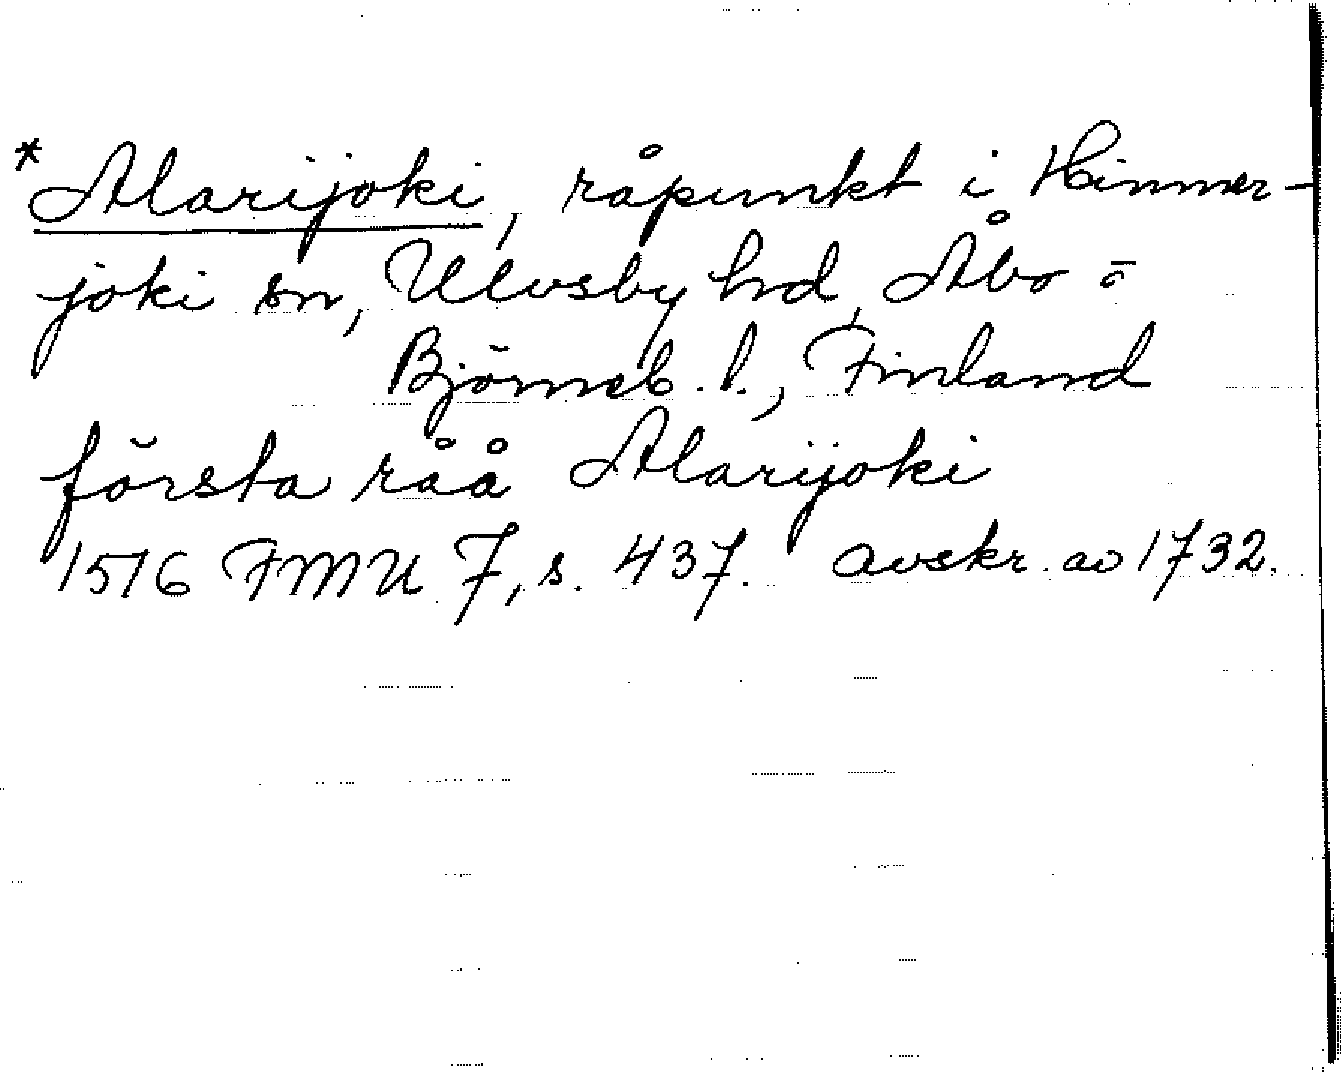 *Alarijoki, råpunkt i Hinner-
joki sn, Ulvsby hd, Åbo o
Björneb. l., Finland
första råå Alarijoki
1516 FMU 7, s. 437. avskr. av 1732.